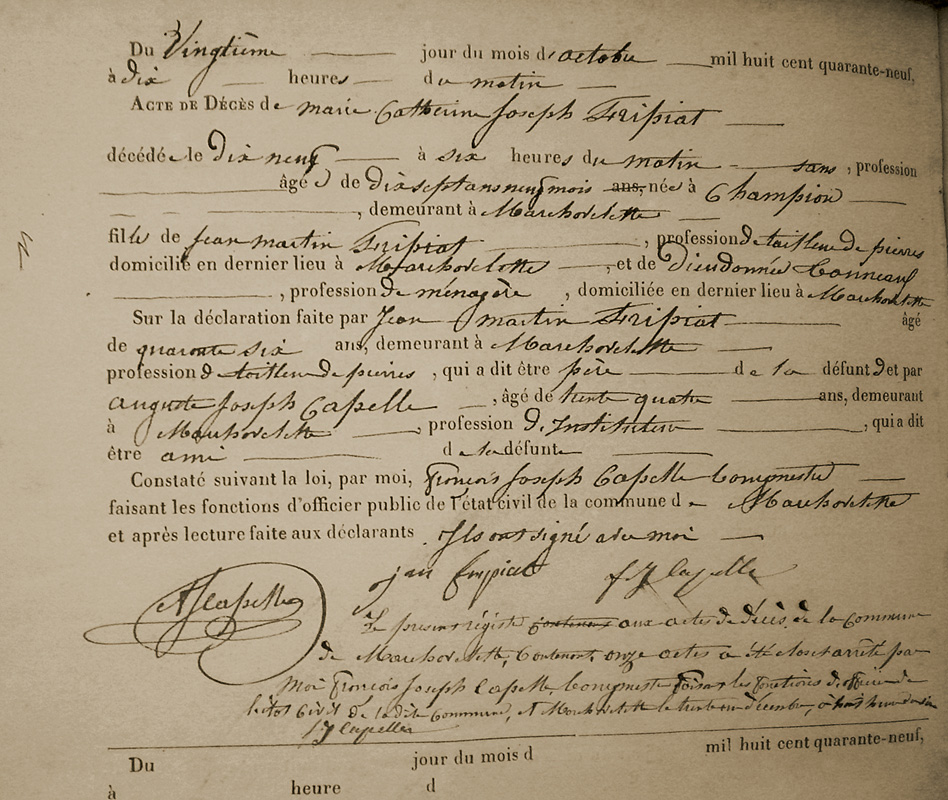 Du Vingtième jour du mois d'octobre mil huit cent quarante-neuf,
à dix heures du matin
ACTE DE DÉCÈS de marie Catherine Joseph Fripiat
décédée le dix neuf à six heures du matin sans, profession
âgé de dix sept ans neuf mois ans, née à Champion
, demeurant à Marchovelette
fille de Jean martin Fripiat, profession de tailleur de pierres
domicilié en dernier lieu à Marchovelette, et de Dieudonnée
, profession de ménagère, domiciliée en dernier lieu à Marchovelette
Sur la déclaration faite par Jean martin Fripiat âgé
de quarante six ans, demeurant à Marchovelette
profession de tailleur de pierres, qui a dit être père de la défunte et par
auguste Joseph Capelle, âgé de trente quatre ans, demeurant
à Marchovelette, profession d'Instituteur, qui a dit
être ami de la défunte
Constaté suivant la loi, par moi, François Joseph Capelle Bourgmestre
faisant les fonctions d'officier public de l'état civil de la commune de Marchovelette
et après lecture faite aux déclarants. Ils ont signé avec moi
jan fripiat fJ Capelle
AJCapelle
Le present régistre contenant aux actes de décès de la Commune
de Marchovelette, Contenant onze actes a été clos et arrêté par
Moi François Joseph Capelle, Bourgmestre faisant les fonctions d'officier de
l'état Civil de la dite Commune, à Marchovelette le trente un décembre, à huit heures du soir
fJ Capelle
Du jour du mois d mil huit cent quarante-neuf,
à heure d